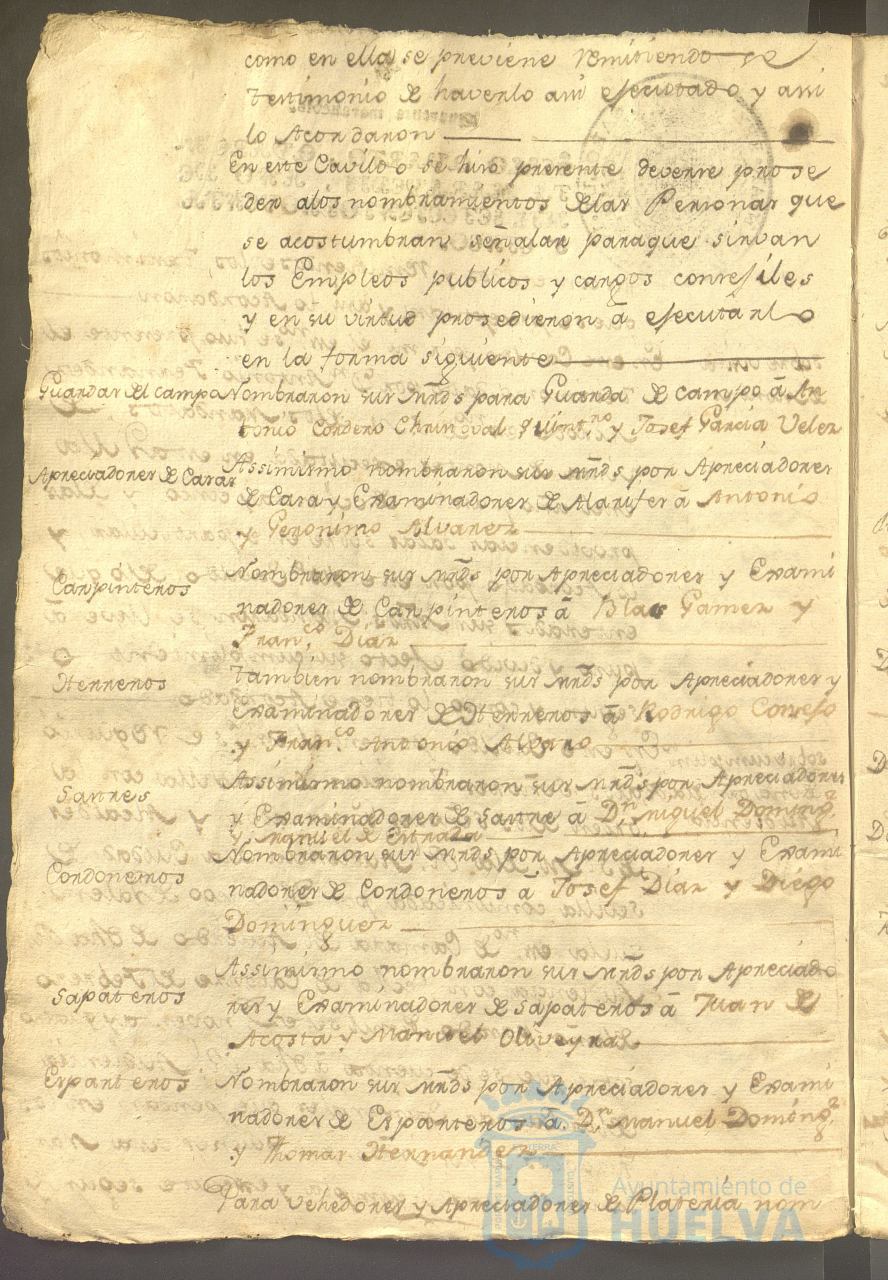 como en ella se previene remitiendo se
testimonio de haverlo asi esecutado y asi
lo Acordaron
En este Cavildo se hizo presente deverse prose
der a los nombramientos de las Personas que
se acostumbran señalar para que sirvan
los Empleos publicos y cargos consesiles
y en su virtud prosedieron â esecutarlo
en la forma siguiente
Guardas del campo Nombraron sus mrds para Guarda de campo â An
tonio Cordero Christoval Quint.no y Josef Garcia Velez
Apreciadores de Casas Assimismo nombraron sus mrds por Apreciadores
de Casa y Examinadores de Alarifes â Antonio
y Geronimo Alvarez
Carpinteros Nombraron sus mrds por Apreciadores y Exami
nadores de Carpinteros â Blas Gamez y
Fran.co Diaz
Herreros tambien nombraron sus mrds por Apreciadores y
Examinadores de Herreros â Rodrigo Consejo
y Fran.co Antonio Alfaro
Sastres Assimismo nombraron sus mrds por Apreciadores
y Examinadores de Sastre â Dn Miguel Doming.z
y Manuel de Estrada
Cordoneros Nombraron sus mrds por Apreciadores y Exami
nadores de Cordoneros â Josef Diaz y Diego
Dominguez
Sapateros Assimismo nombraron sus mrds por Apreciado
res y Examinadores de Sapateros â Juan de
Acosta y Manuel Oliveyra
Esparteros Nombraron sus mrds por Apreciadores y Exami
nadores de Esparteros â Dn Manuel Doming.z
y Thomas Hernandez
Para Vehedores y Apreciadores de Plateria nom
Ayuntamiento de
HUELVA